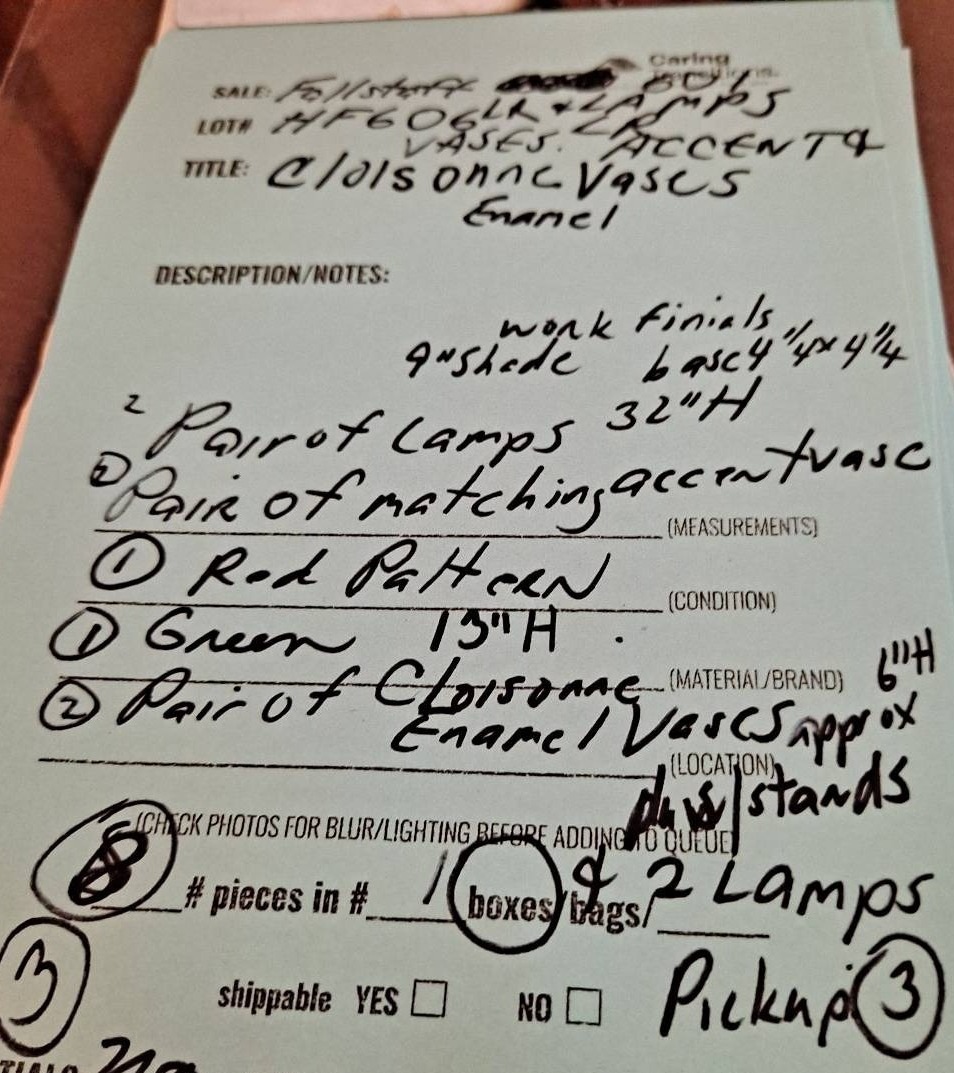 Caring
Transitions.
SALE: Fallstaff 601
LOT# HF606 LR & LAMPS
VASES. LR ACCENT &
TITLE: Cloisonne Vases
Enamel
DESCRIPTION/NOTES:
work finials
9" shade base 4 1/4 x 4 1/4
2 Pair of Lamps 32"H
2 Pair of matching accent vase
(MEASUREMENTS)
1 Red Pattern
(CONDITION)
1 Green 13"H.
(MATERIAL/BRAND) 6"H
2 Pair of Cloisonne
Enamel Vases approx
(LOCATION)
plus stands
(CHECK PHOTOS FOR BLUR/LIGHTING BEFORE ADDING TO QUEUE)
8 # pieces in # 1 boxes/bags/ & 2 Lamps
3 shippable YES NO Pickup 3